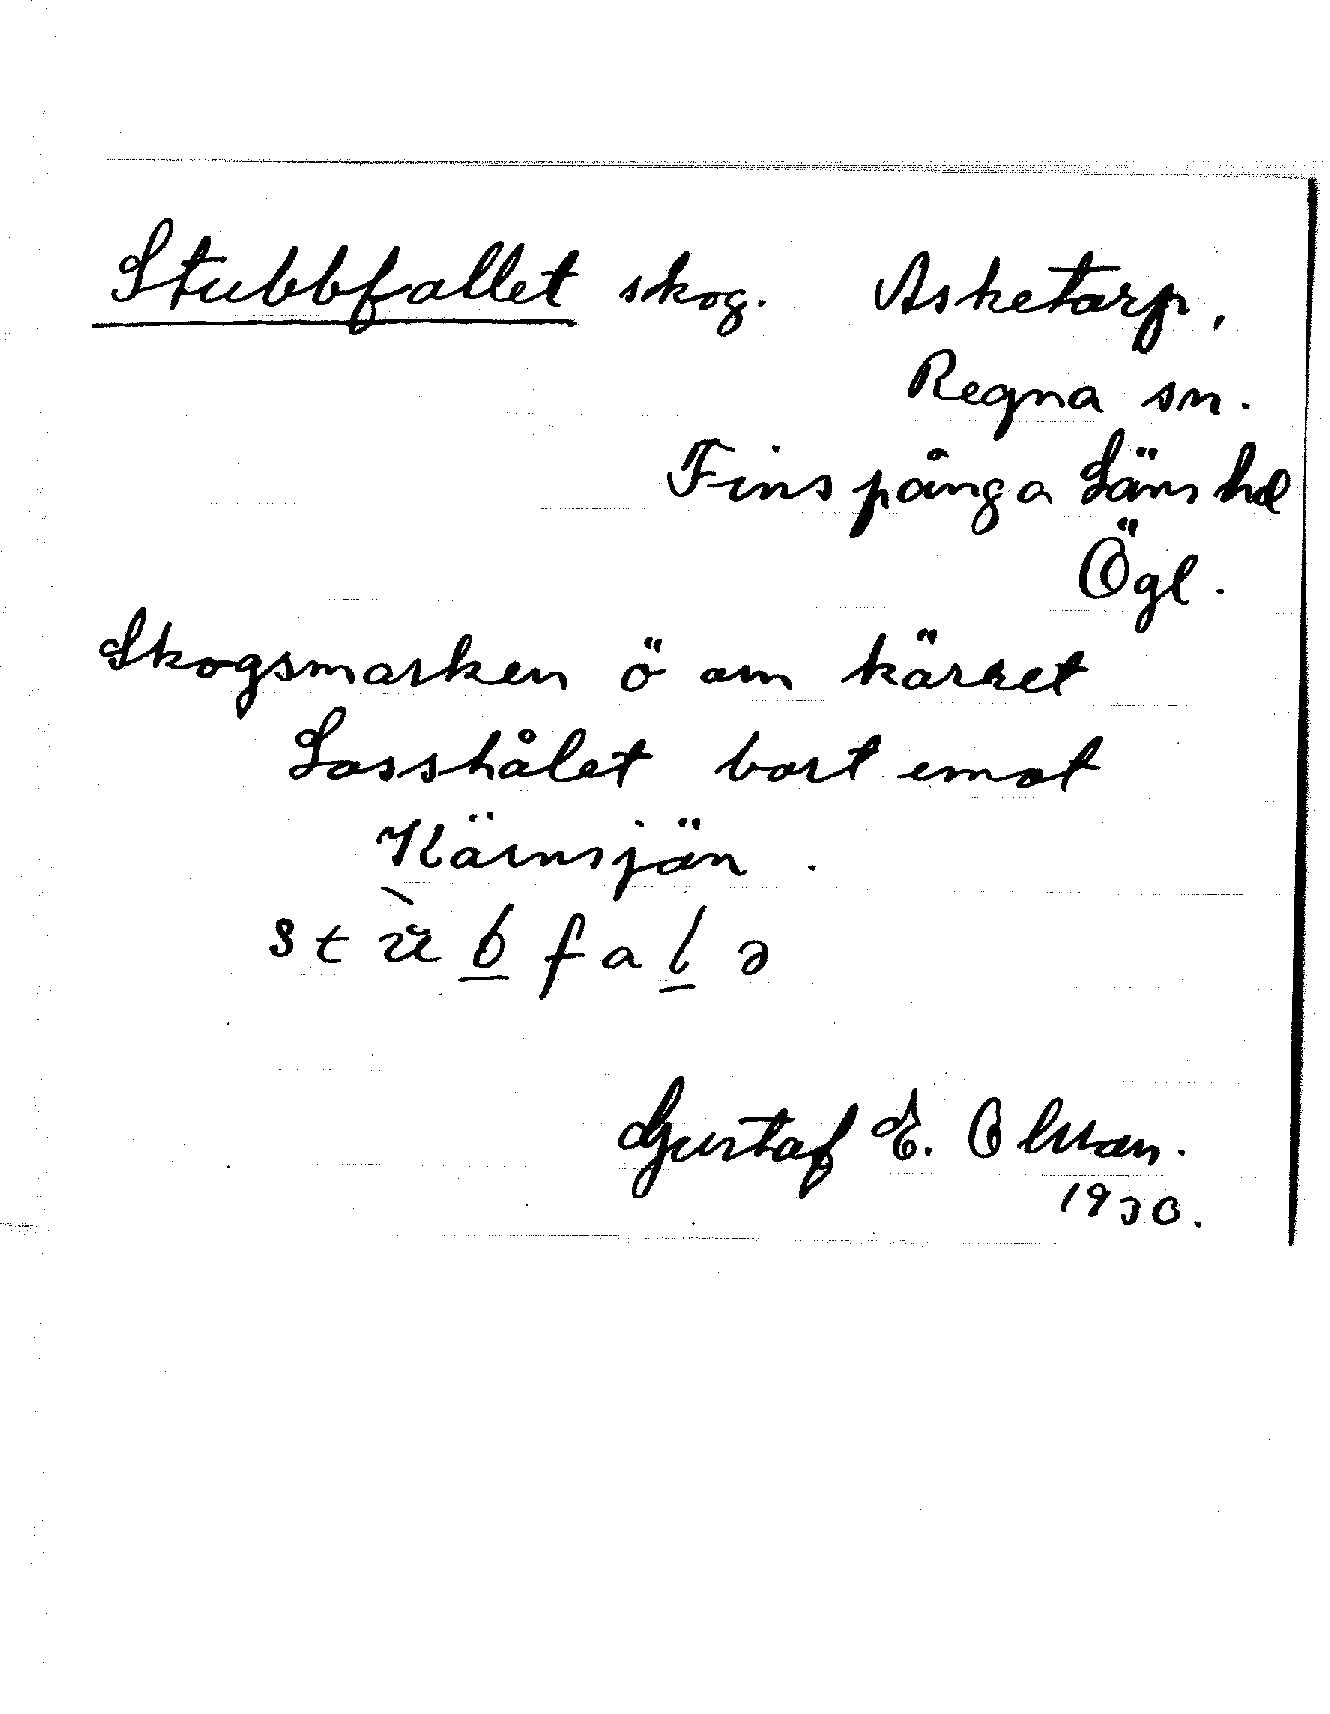 Stubbfallet skog. Asketorp,
Regna sn.
Finspånga Läns hd
Ögl.
Skogsmarken ö om kärret
Losshålet bort emot
Kärnsjön.
Gustaf E. Olsson.
1930.